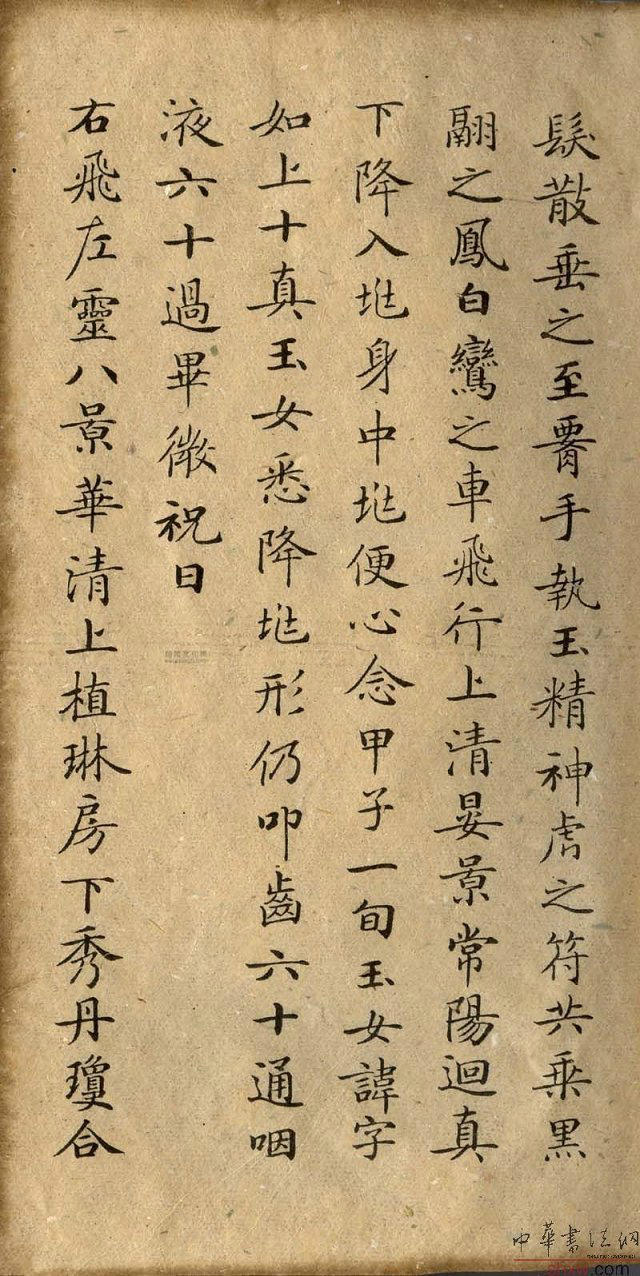 髮散垂之至署手執玉精神虎之符共乗黒
翮之鳳白鸞之車飛行上清晏景常陽迴真
下降入兆身中兆便心念甲子一旬玉女諱字
如上十真玉女悉降兆形仍叩齒六十通咽
液六十過畢微祝曰
右飛左靈八景華清上植琳房下秀丹瓊合
中華書法網
.com